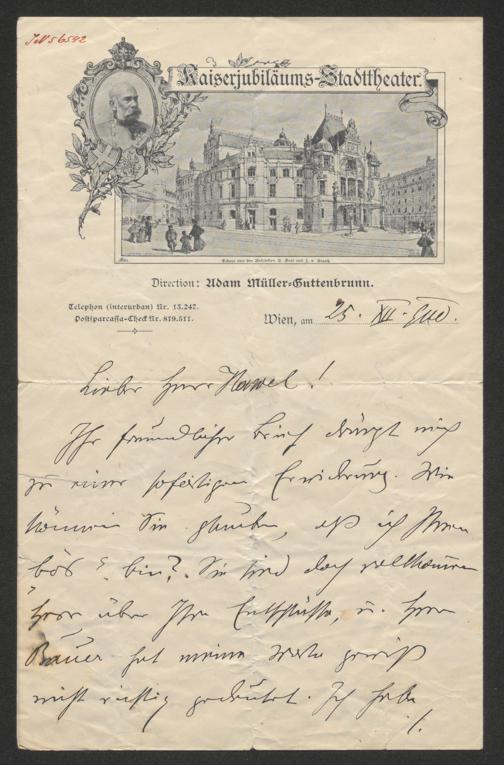 Kaiserjubiläums-Stadttheater.
Direction: Adam Müller-Guttenbrunn.
Telephon (interurban) Nr. 13.247.
Postsparcassa-Check Nr. 819.511.
Wien, am 25. XII. 900.
Lieber Herr Hawel!
Ihr freundlicher Brief drängt mich
zu einer sofortigen Erwiderung. Wie
können Sie glauben, daß ich Ihnen
„bös" bin? Sie sind doch vollkommen
Herr über Ihre Entschlüsse, u. Herr
Bauer hat meine Worte gewiß
nicht richtig gedeutet. Ich habe
./.